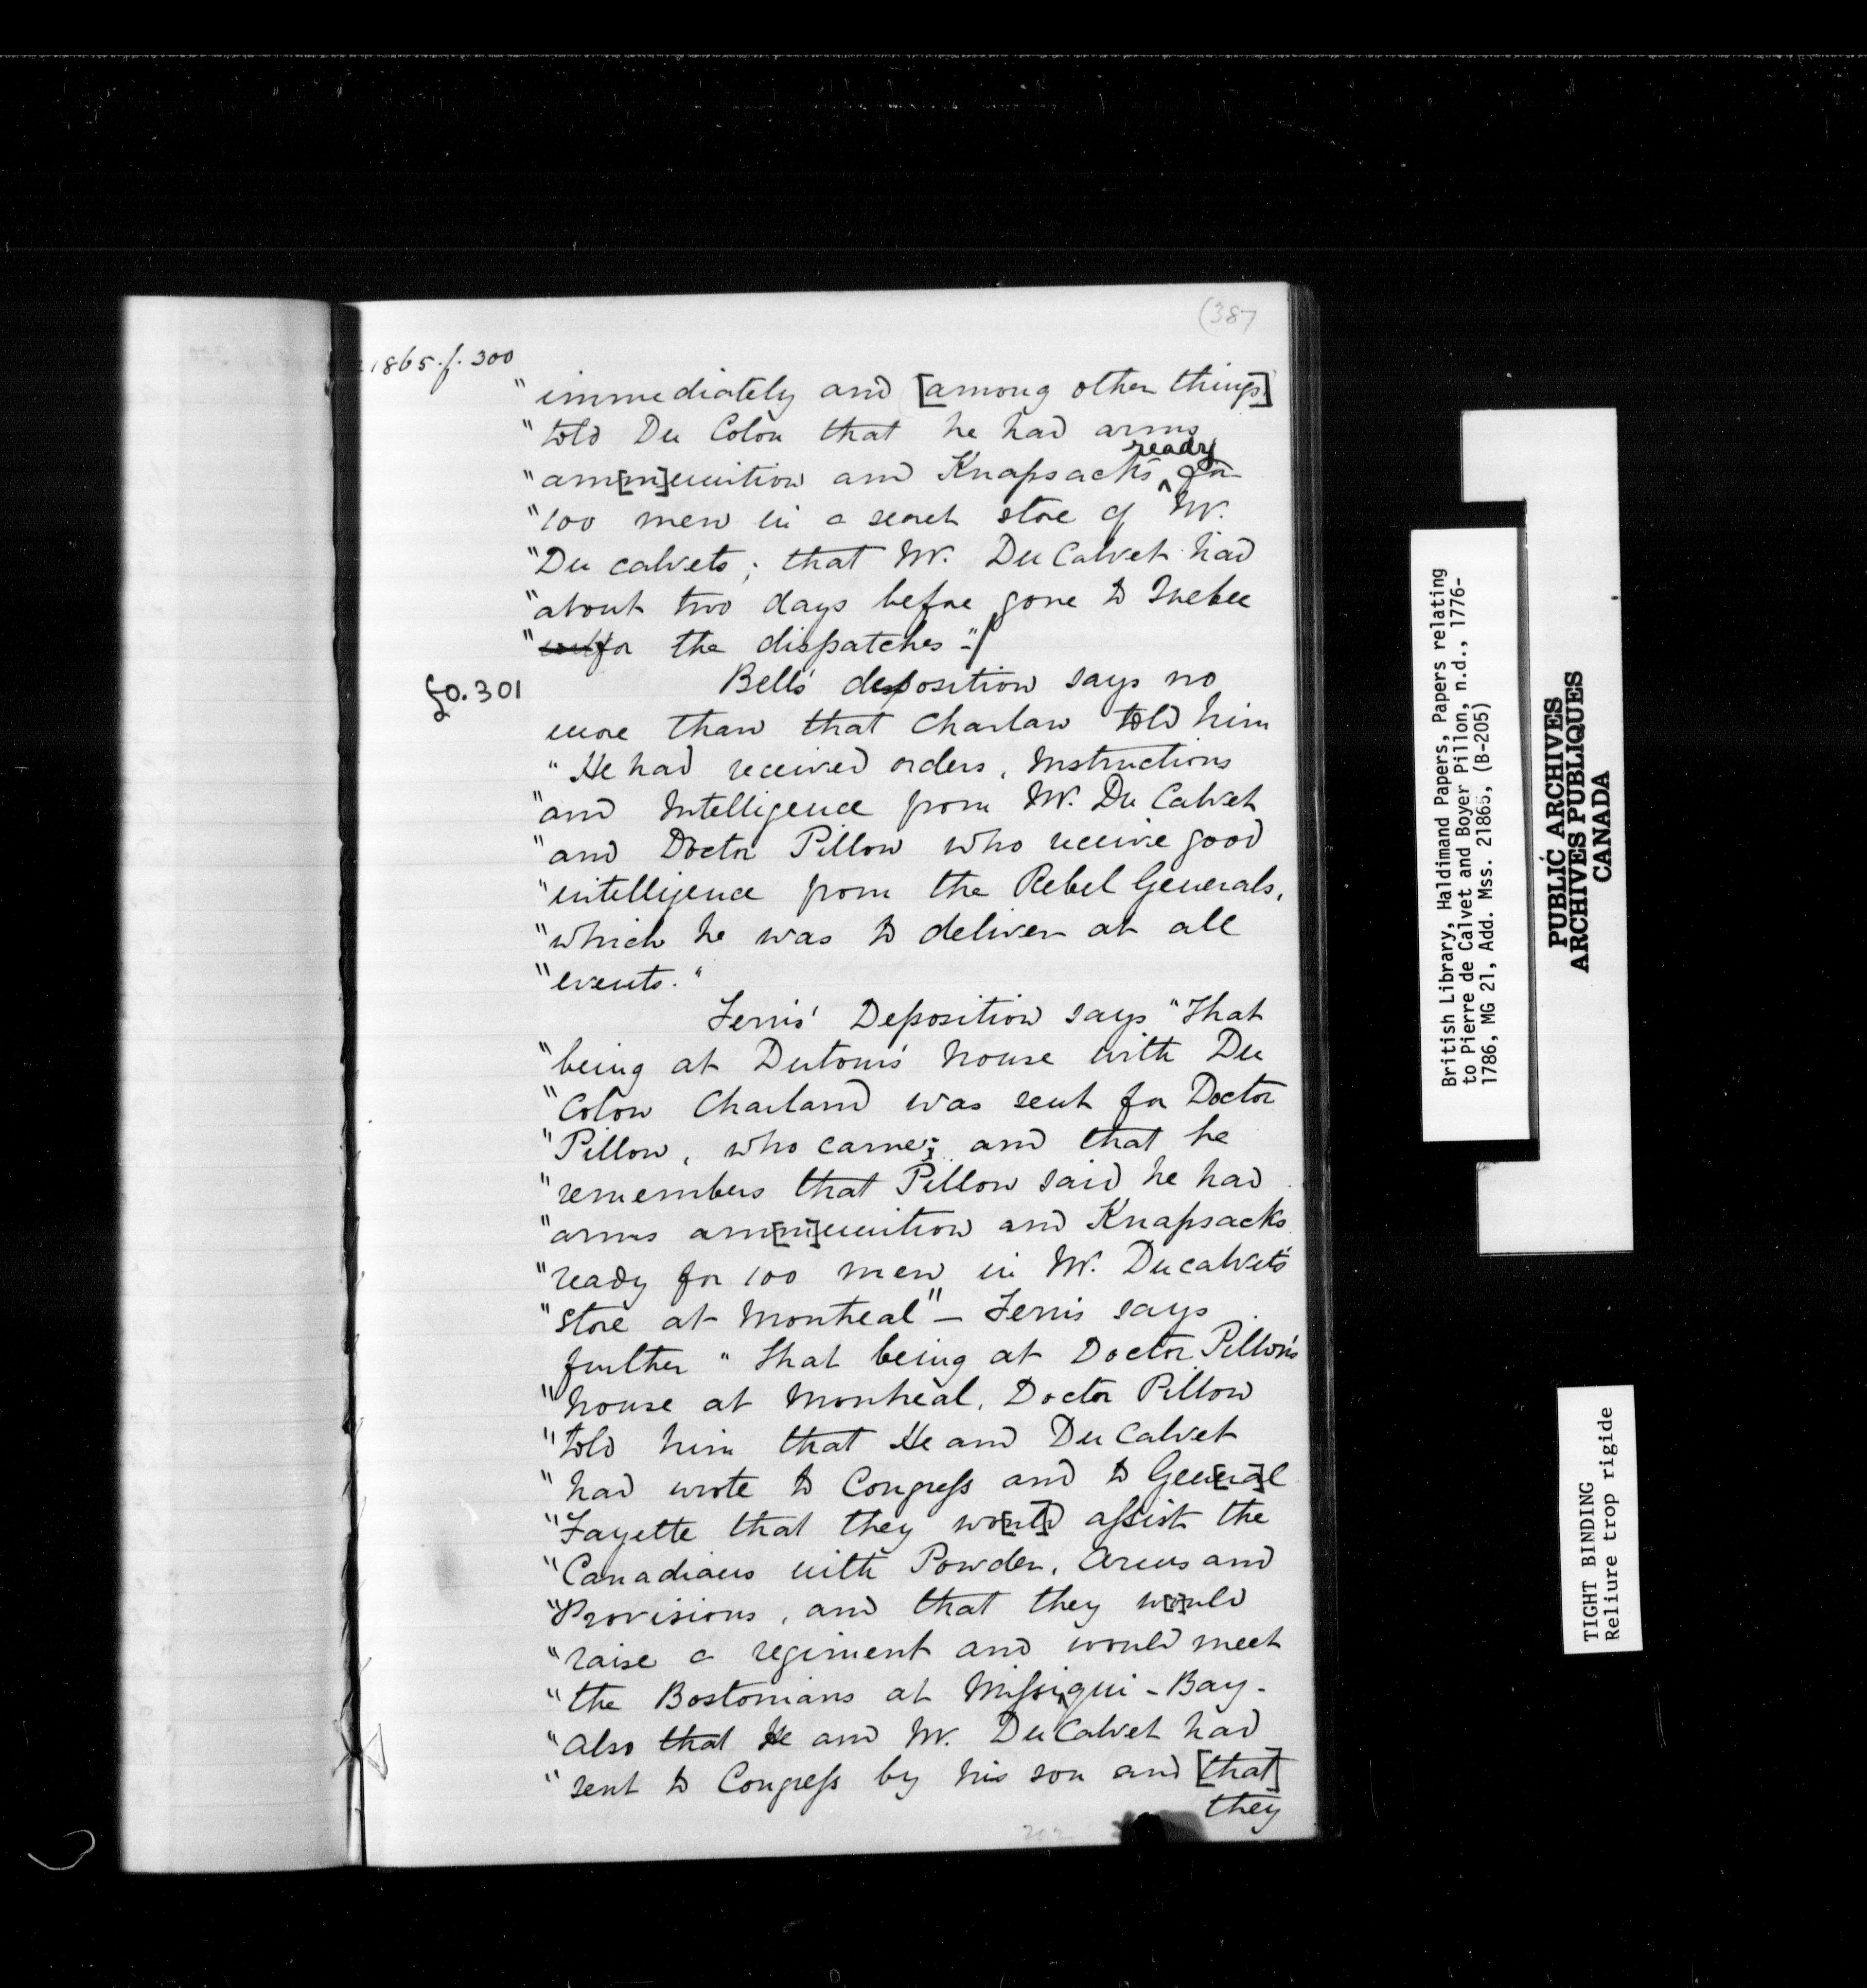 (387
21865.f.300
"immediately and [among other things]
"told Du Colon that he had arms
ready
"am[m]unition and Knapsacks ^ for
"100 men in a secret store of Mr.
"Du calvets; that Mr. Du Calvet had
"about two days before gone to Quebec
"for the dispatches."/
fo.301
Bell's deposition says no
more than that Charlan told him
"He had received orders, Instructions
"and Intelligence from Mr. Du Calvet
"and Doctor Pillow who receive good
"intelligence from the Rebel Generals,
"which he was to deliver at all
"events."
Ferris' Deposition says "That
"being at Dutom's house with Du
"Colon Charland was sent for Doctor
"Pillow, who came; and that he
"remembers that Pillow said he had
"arms am[m]unition and Knapsacks
"ready for 100 men in Mr. Ducalvet's
"store at Montreal" – Ferris says
further "That being at Doctor Pillow's
"house at Montreal, Doctor Pillow
"told him that He and Du Calvet
"had wrote to Congress and to Gen[era]l
"Fayette that they wo[ul]d assist the
"Canadians with Powder, Arms and
"Provisions, and that they would
"raise a regiment and would meet
"the Bostonians at Missiqui - Bay -
"also that He and Mr. Du Calvet had
"sent to Congress by his son and [that]
they
British Library, Haldimand Papers, Papers relating
to Pierre de Calvet and Boyer Pillon, n.d., 1776-
1786, MG 21, Add. Mss. 21865, (B-205)
PUBLIC ARCHIVES
ARCHIVES PUBLIQUES
CANADA
TIGHT BINDING
Reliure trop rigide